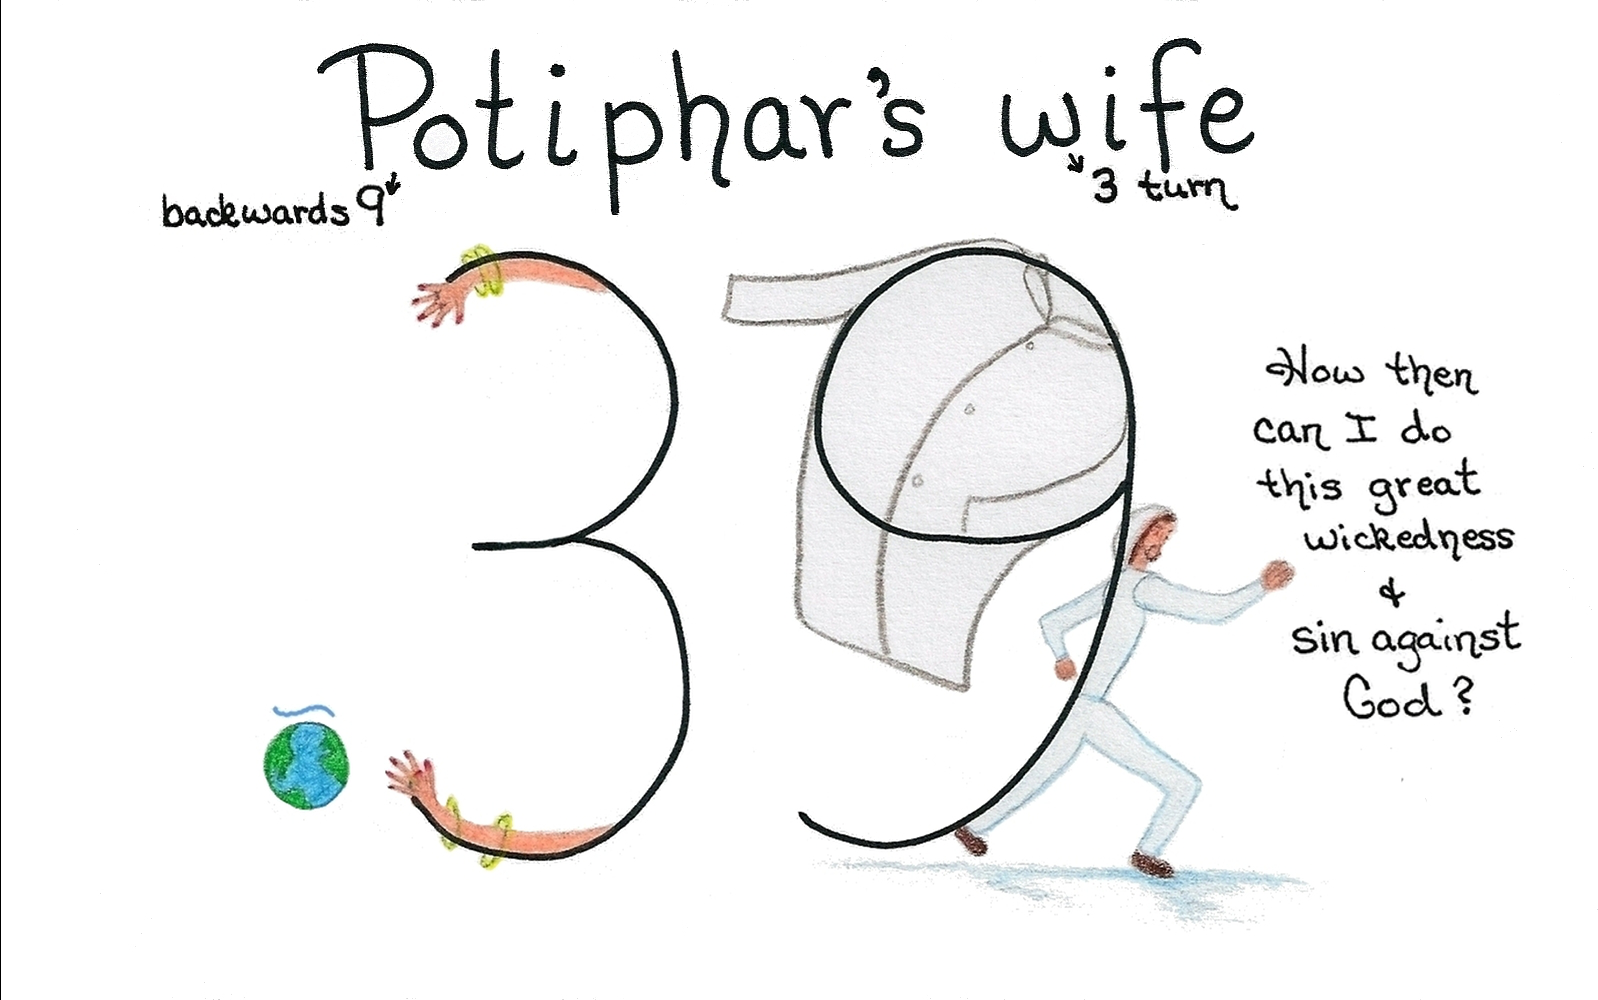 Potiphar's wife
backwards 9
3 turn
39
How then
can I do
this great
wickedness
&
sin against
God?